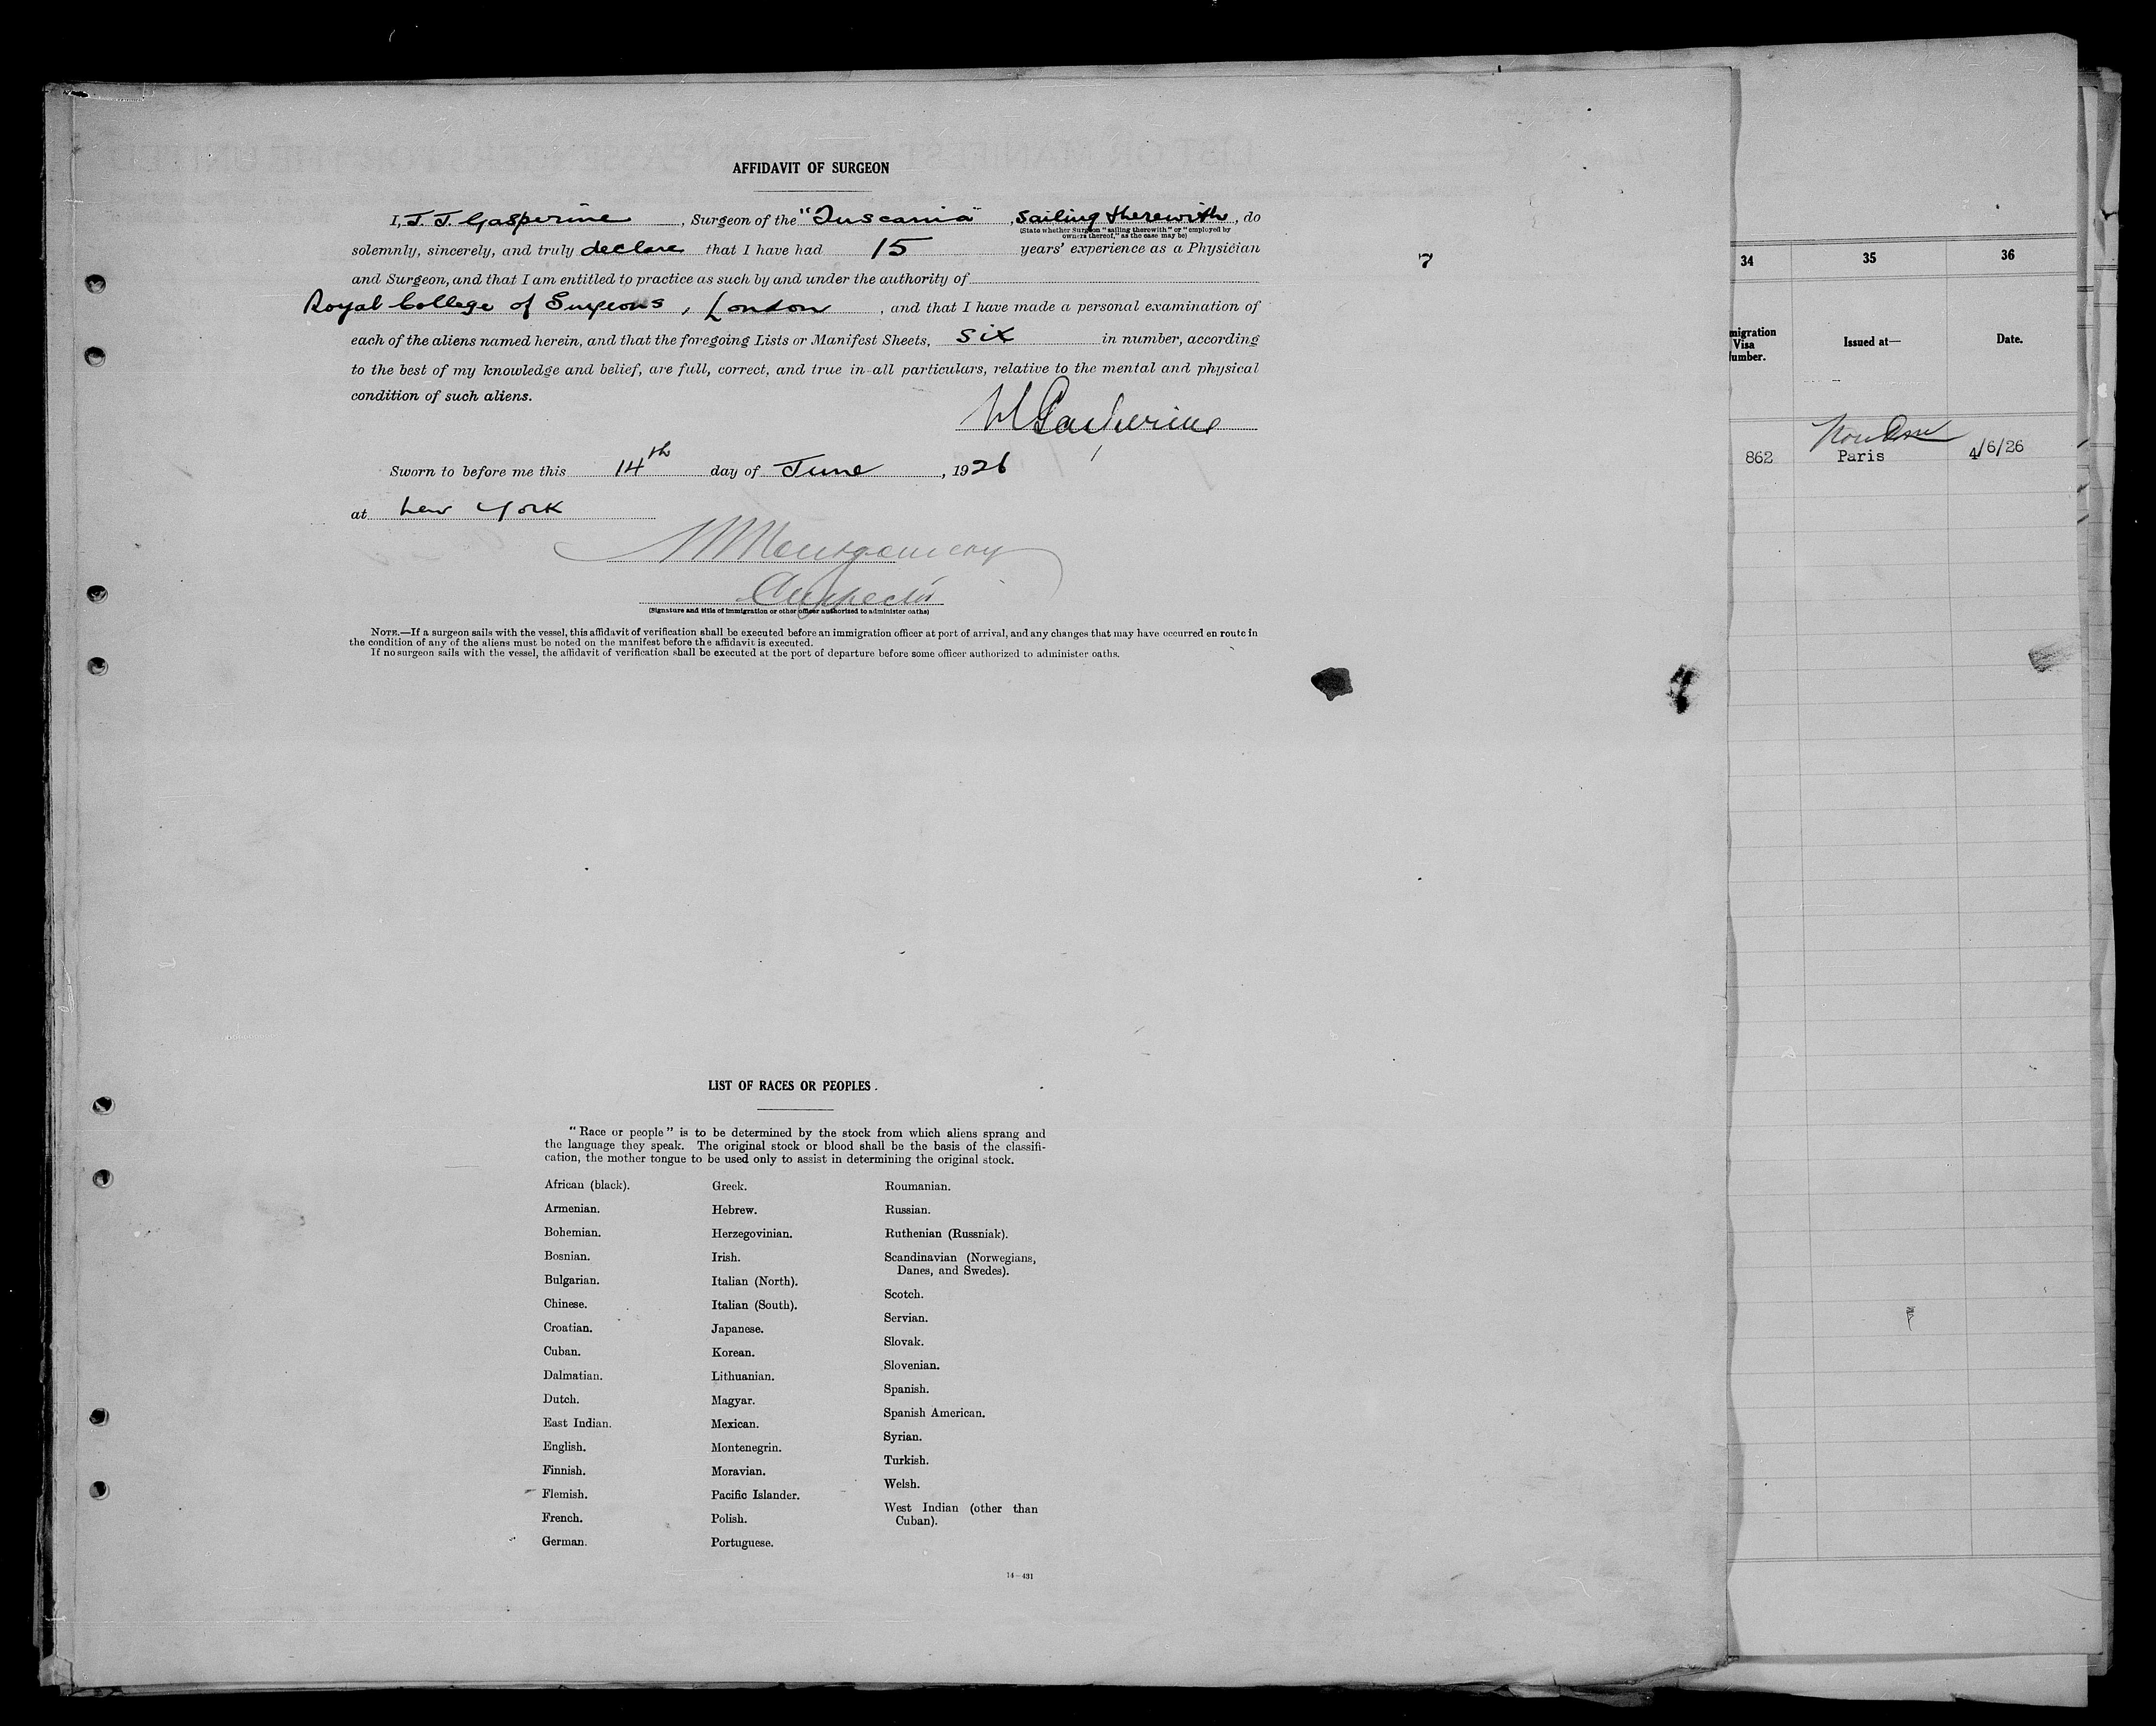 AFFIDAVIT OF SURGEON
I, J. J. Gasperine, Surgeon of the "Tuscania", sailing therewith, do
(State whether Surgeon "sailing therewith" or "employed by
owners thereof," as the case may be)
solemnly, sincerely, and truly declare that I have had 15 years' experience as a Physician
and Surgeon, and that I am entitled to practice as such by and under the authority of
Royal College of Surgeons, London, and that I have made a personal examination of
each of the aliens named herein, and that the foregoing Lists or Manifest Sheets, six in number, according
to the best of my knowledge and belief, are full, correct, and true in all particulars, relative to the mental and physical
condition of such aliens.
Sworn to before me this 14th day of June, 1926
at New York
Montgomery
Inspector
(Signature and title of immigration or other officer authorized to administer oaths)
NOTE.—If a surgeon sails with the vessel, this affidavit of verification shall be executed before an immigration officer at port of arrival, and any changes that may have occurred en route in
the condition of any of the aliens must be noted on the manifest before the affidavit is executed.
If no surgeon sails with the vessel, the affidavit of verification shall be executed at the port of departure before some officer authorized to administer oaths.
7
LIST OF RACES OR PEOPLES.
"Race or people" is to be determined by the stock from which aliens sprang and
the language they speak. The original stock or blood shall be the basis of the classifi-
cation, the mother tongue to be used only to assist in determining the original stock.
African (black).
Armenian.
Bohemian.
Bosnian.
Bulgarian.
Chinese.
Croatian.
Cuban.
Dalmatian.
Dutch.
East Indian.
English.
Finnish.
Flemish.
French.
German.
Greek.
Hebrew.
Herzegovinian.
Irish.
Italian (North).
Italian (South).
Japanese.
Korean.
Lithuanian.
Magyar.
Mexican.
Montenegrin.
Moravian.
Pacific Islander.
Polish.
Portuguese.
Roumanian.
Russian.
Ruthenian (Russniak).
Scandinavian (Norwegians,
Danes, and Swedes).
Scotch.
Servian.
Slovak.
Slovenian.
Spanish.
Spanish American.
Syrian.
Turkish.
Welsh.
West Indian (other than
Cuban).
14—431
34 35 36
migration
Visa
umber.
Issued at—
Date.
862 Paris 4/6/26